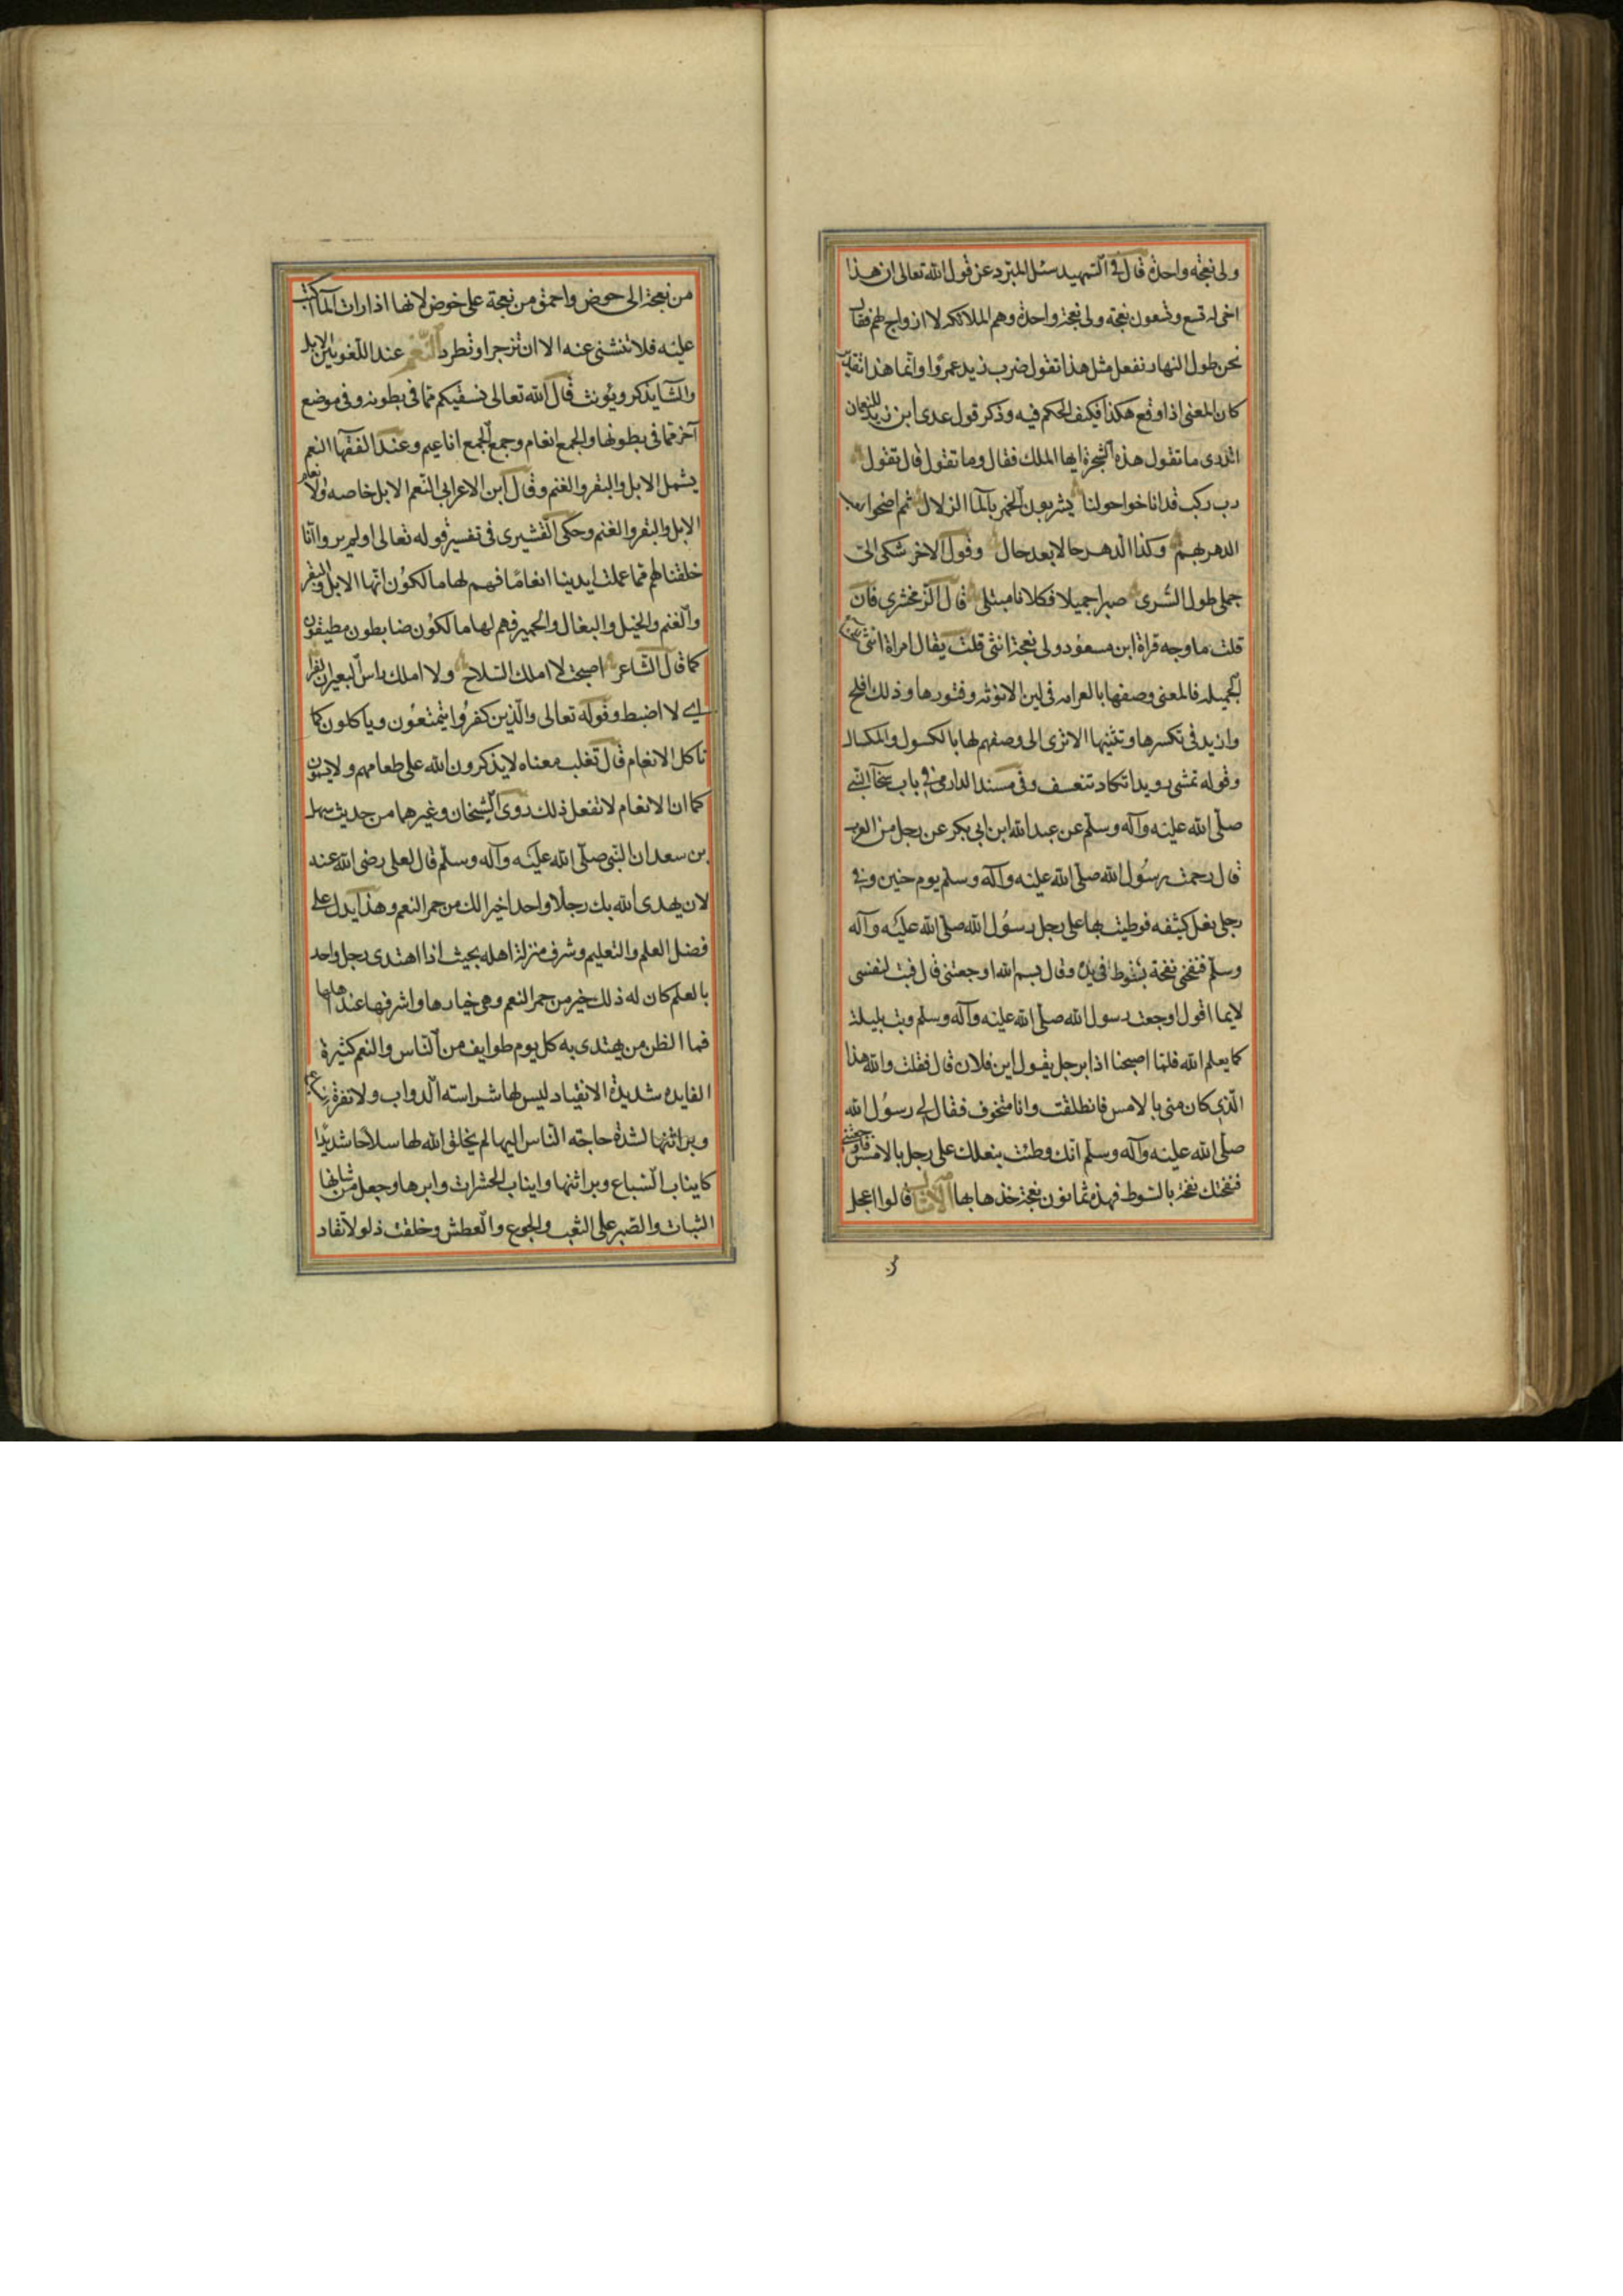 ولى نعجة واحدة قال فى التمهيد سئل المبرد عن قول الله تعالى ان هذا
اخى له تسع وتسعون نعجة ولى نعجة واحدة وهم الملائكه لا ازواج لهم فقال
نحن طول النهار نفعل مثل هذا نقول ضرب زيد عمرًوا وانما هذا تقدير
كان المعنى اذا وقع هكذا فكيف الحكم فيه وذكر قول عدى ابن زيد للنعمان
اتدرى ما تقول هذه الشجرة ايها الملك فقال وما تقول قال تقول
رب ركب قد اناخوا حولنا يشربون الخمر بالمآ الزلال ثم اضحوا
الدهر بهم وكذا الدهر حالا بعد حال وقول الاخر شكى الى
جملى طول السرى صبرا جميلا فكلانا مبتلى قال الزمخشرى فان
قلت ما وجه قراة ابن مسعود ولى نعجة انثى قلت يقال امراة انثى
الجميله فالمعنى وصفها بالعرامه فى لين الانوثه وفتورها وذلك املح
وازيد فى تكسرها وتثنيها الا ترى الى وصفهم لها بالكسول والمكسال
وقوله تمشى رويدا تكاد تنعسف وفى مسند الدارمى فى باب سخآ النبى
صلى الله عليه وآله وسلم عن عبد الله ابن ابى بكر عن رجل من العرب
قال رحمت رسول الله صلى الله عليه وآله وسلم يوم حنين وفى
رجلى نعل كثيفه فوطيت بها على رجل رسول الله صلى الله عليه وآله
وسلم فنفخنى نفخة بسوط فى يده وقال بسم الله اوجعتنى قال فبت لنفسى
لايما اقول اوجعت رسول الله صلى الله عليه وآله وسلم وبت بليلة
كما يعلم الله فلما اصبحنا اذا برجل يقول اين فلان قال فقلت والله هذا
الذى كان منى بالامس فانطلقت وانا متخوف فقال لى رسول الله
صلى الله عليه وآله وسلم انك وطئت بنعلك على رجلى بالامس فاوجعتنى
فنفختك نفخة بالسوط فهذه ثمانون نعجة خذها بها الامثال قالوا اعجل
من
من نعجة الى حوض واحمق من نعجة على حوض لانها اذا رات المآ اكبت
عليه فلا تنثنى عنه الا ان تزجر او تطرد النّعم عند اللغويين الابل
والشا يذكر ويؤنث قال الله تعالى نسقيكم مما فى بطونه وفى موضع
آخر مما فى بطونها والجمع انعام وجمع الجمع اناعيم وعند الفقهآ النعم
يشمل الابل والبقر والغنم وقال ابن الاعرابى النعم الابل خاصه والانعام
الابل والبقر والغنم وحكى القشيرى فى تفسير قوله تعالى اولم يروا انا
خلقنا لهم مما عملت ايدينا انعامًا فهم لها مالكون انها الابل والبقر
والغنم والخيل والبغال والحمير فهم لها مالكون ضابطون مطيقون
كما قال الشاعر اصبحت لا املك السلاح ولا املك راس البعير ان نفرا
اى لا اضبط وقوله تعالى والذين كفروا يتمتعون وياكلون كما
تاكل الانعام قال ثعلب معناه لا يذكرون الله على طعامهم ولا يسمون
كما ان الانعام لا تفعل ذلك روى الشيخان وغيرهما من حديث سهل
بن سعد ان النبى صلى الله عليه وآله وسلم قال لعلى رضى الله عنه
لان يهدى الله بك رجلا واحدا خير الك من حمر النعم وهذا يدل على
فضل العلم والتعليم وشرف منزلة اهله بحيث اذا اهتدى رجل واحد
بالعلم كان له ذلك خير من حمر النعم وهى خيارها واشرفها عند اهلها
فما الظن من يهتدى به كل يوم طوايف من الناس والنعم كثيرة
الفايده شديدة الانقياد ليس لها شراسة الدواب ولا نفرة
وبراثنها لشدة حاجة الناس اليها لم يخلق الله لها سلاحا شديدا
كايناب السباع وبراثنها وايناب الحشرات وابرها وجعل من شانها
الثبات والصبر على التعب والجوع والعطش وخلقت ذلولا تقاد